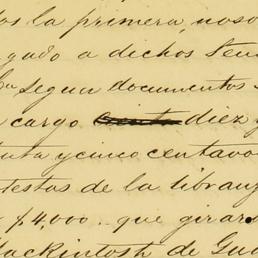 os la primera, noso
gado a dichos Seu
Ca segun documentos
cargo diez y
nta y cinco centavo
testas de la libranz
$4,000.. que girar
Mackintosh de Gua